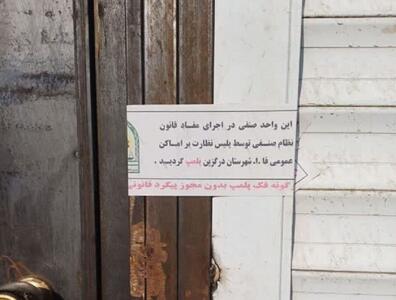 این واحد صنفی در اجرای مفاد قانون
نظام صنفی توسط پلیس نظارت بر اماکن
عمومی فا.ا. شهرستان درگزین پلمپ گردید .
گونه فک پلمپ بدون مجوز پیگرد قانونی